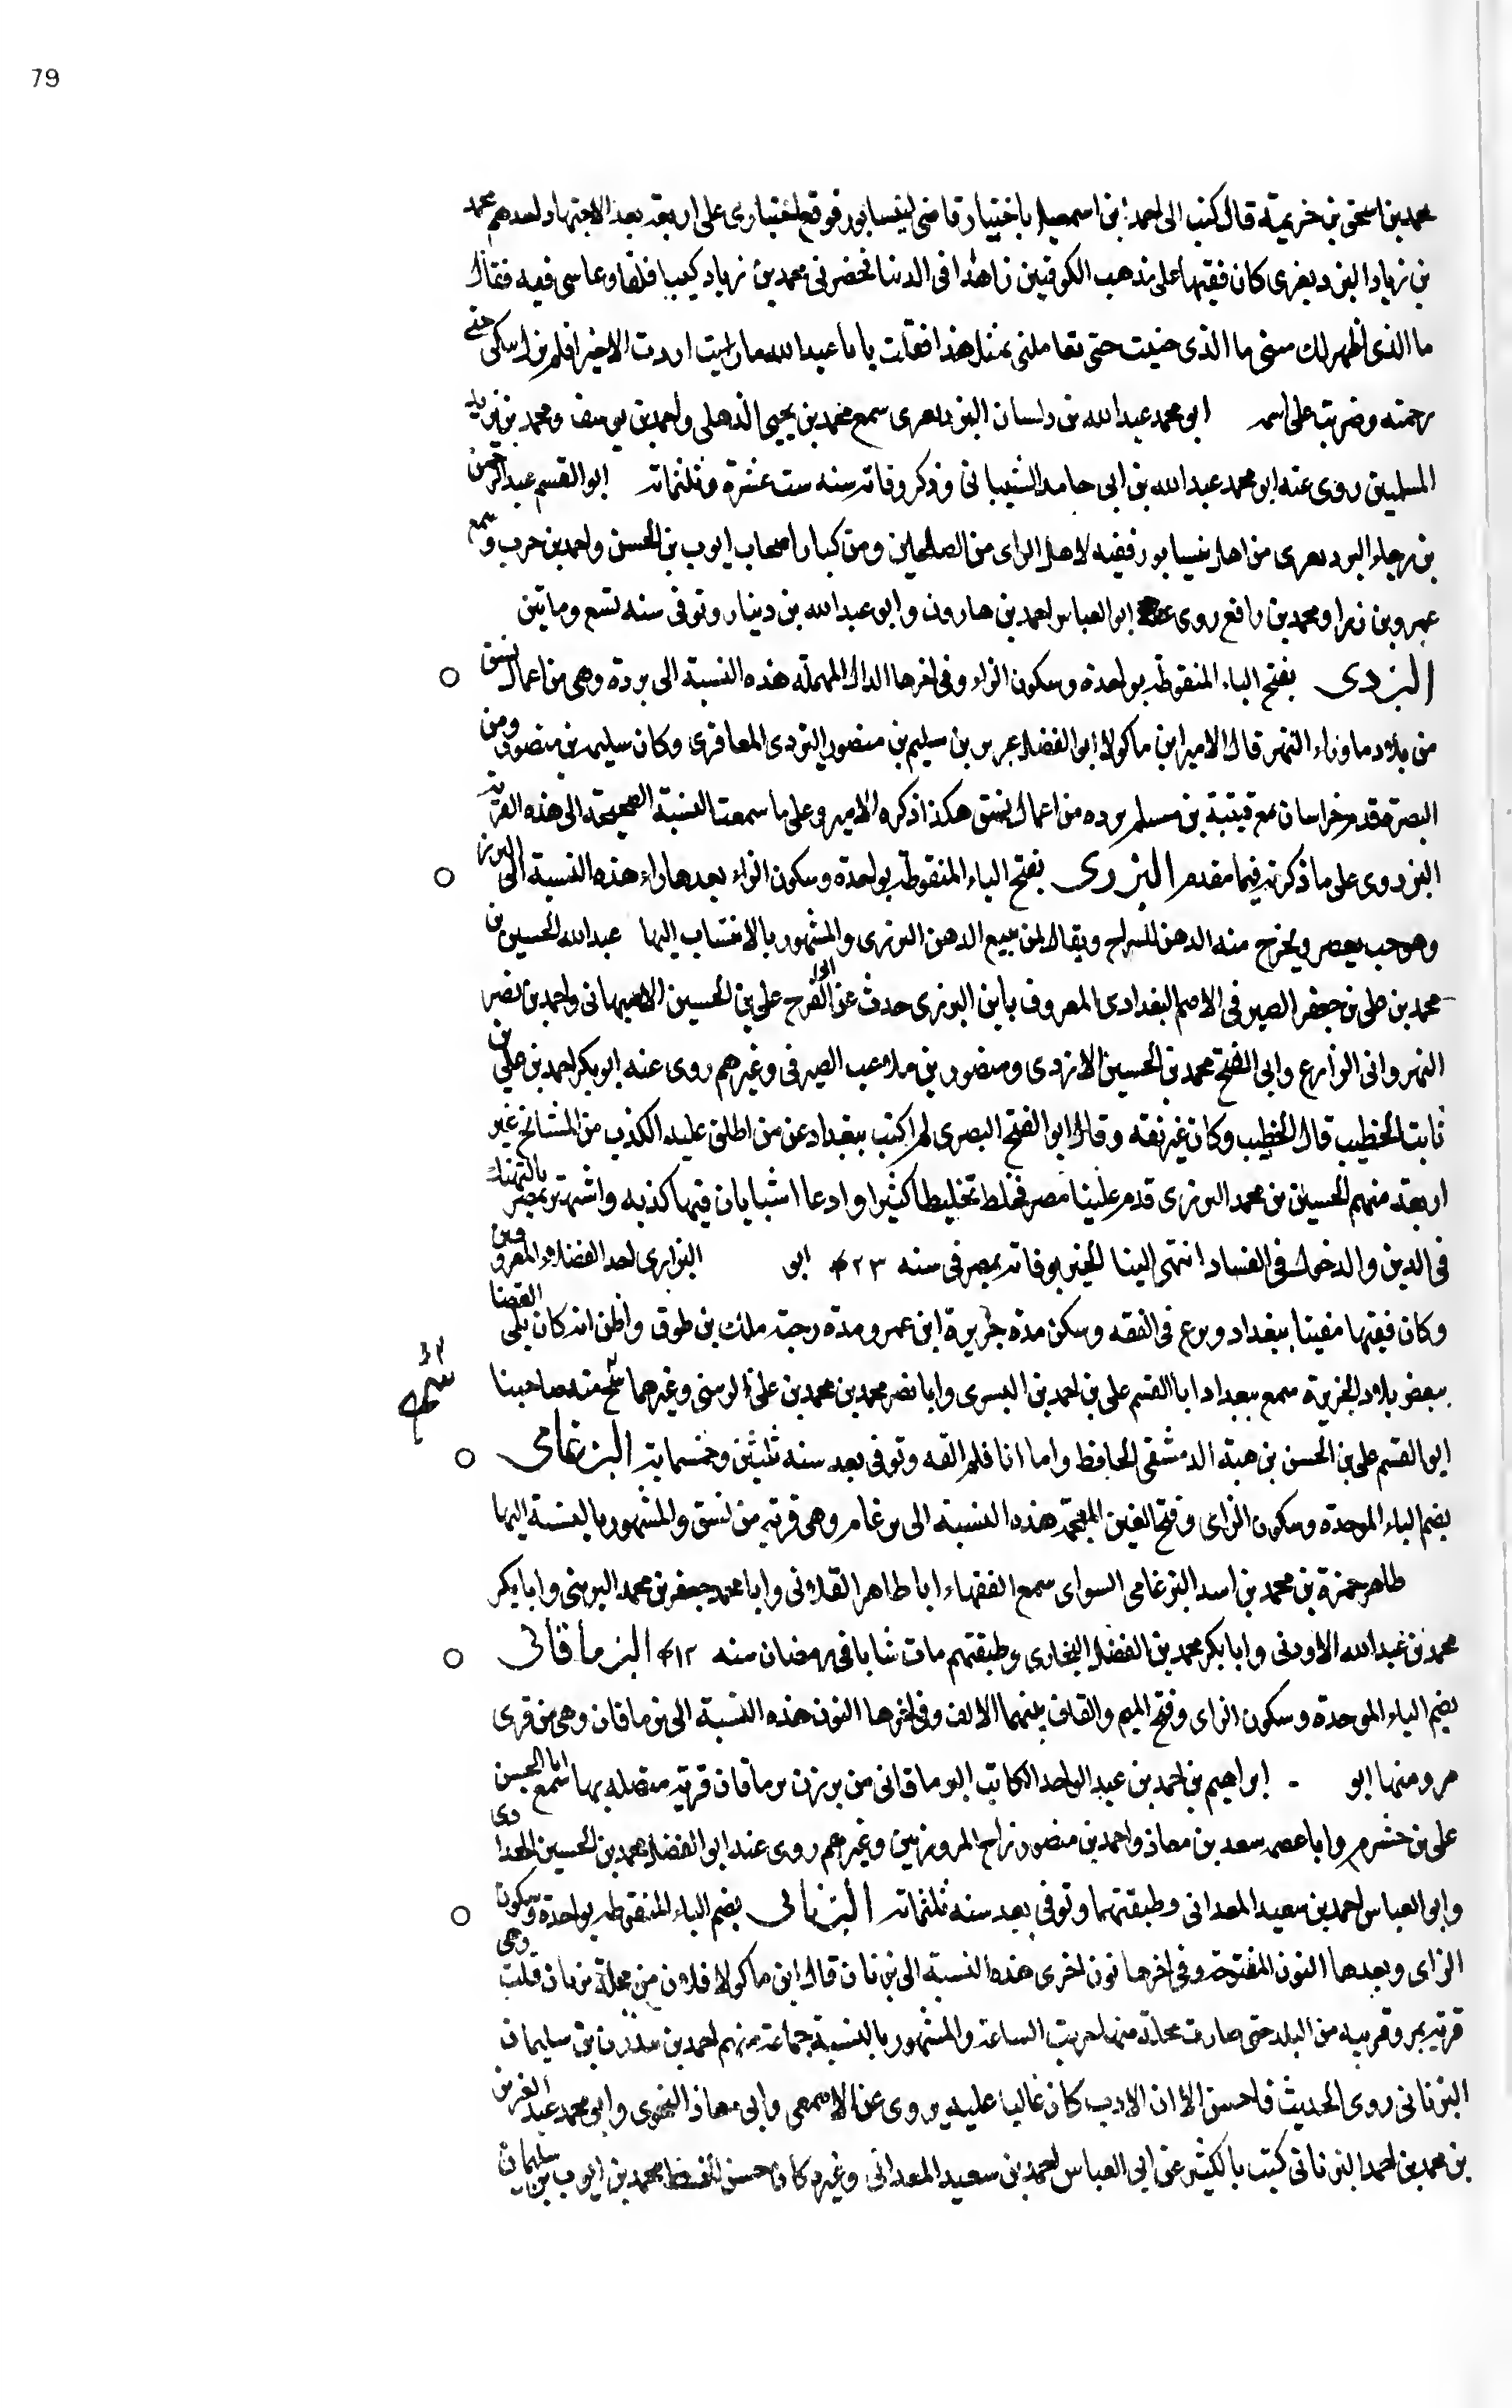 79
محمد بن اسحق بن خزيمة قال كتب الى احمد بن اسمعيل باختيار قاضى لنيسابور فوقع اختيارى على اربعة بعد الاجتهاد احدهم محمد
بن زياد البزديغرى كان فقيها على مذهب الكوفيين زاهدا فى الدنيا فحضرنى محمد بن زياد كيبا فلقا وعاسى فيه فقال
ما الذى ظهر لك منى ما الذى جنيت حتى تعاملنى بمثل هذا فقلت يابا عبد الله ما رايت اردت الا خيرا فلم يزل يبكى حتى
رحمته وضربت على اسمه ابو محمد عبد الله بن دلسان البزديعرى سمع محمد بن يحيى الذهلى واحمد بن يوسف ومحمد بن يزيد
السلمين روى عنه ابو محمد عبد الله بن ابى حامد الشيبانى وذكر وفاته سنه ست عشرة وثلثمائه ابو القسم عبد الرحمن
بن رجاء البزديعرى من اهل نيسابور فقيه لاهل الراى من الصالحين ومن كبار اصحاب ايوب بن الحسن واحمد بن حرب وسمع
عمرو بن زرارا ومحمد بن رافع روى عنه ابو العباس احمد بن هارون وابو عبد الله بن دينار وتوفى سنه تسع وماتين
البزدى بفتح الباء المنقوطه بواحدة وسكون الزاء وفى اخرها الدال المهملة هذه النسبة الى بزدة وهى من اعمال نسق
من بلاد ما وراء النهر قال الامير ابن ماكولا ابو الفضل عزيز بن سليم بن منصور البزدى المعافرى وكان سليم بن منصور من
البصرة قدم خراسان مع قتيبة بن مسلم بزده من اعمال نسق هكذا ذكره الامير وعلى ما سمعت النسبة الصحيحة الى هذه القرية
البزدوى على ما ذكرته فيما تقدم البزرى بفتح الباء المنقوطه بواحدة وسكون الزاء بعدها راء هذه النسبة الى البزر
وهو حب يعصر ويخرج منه الدهن للسراج ويقال لمن يبيع الدهن البزرى والمشهور بالانتساب اليها عبد الله الحسين بن
محمد بن على بن جعفر الصيرفى الاصم البغدادى المعروف بابن البزرى حدث عن ابى الفرج على بن الحسين الاصبهانى واحمد بن نصر
النهروانى الزارع وابى الفتح محمد بن الحسين الازدى ومنصور بن ملاعب الصيرفى وغيرهم روى عنه ابو بكر احمد بن على بن
ثابت الخطيب قال الخطيب وكان غير ثقه وقال ابو الفتح البصرى لم اكتب ببغداد عن من اطلق عليه الكذب من المشائخ غير
اربعة منهم الحسين بن محمد البزرى قدم علينا مصر فخلط تخليطا كثيرا وادعا اشيا بان فيها كذبه واشتهر بمصر بالتهتك
فى الدين والدخول فى الفساد انتهى الينا الخبر بوفاته بمصر فى سنه ٤٢٣ ابو البزارى احد الفضلاء المعروفين
وكان فقيها مفتيا ببغداد وبرع فى الفقه وسكن مدة جزيرة ابن عمر ومدة رحبة ملك بن طوق واظن انه كان يلى القضا
ببعض بلاد الجزيرة سمع ببغداد ابا القسم على بن احمد بن البسرى وابا نصر محمد بن محمد بن على الزينبى وغيرهما سمع منه صاحبنا
ابو القسم على بن الحسن بن هبة الدمشقى الحافظ واما انا فلم القه وتوفى بعد سنه ثلثين وخمسمايه البزغامى
بضم الباء الموحدة وسكون الزاى وفتح الغين المعجمة هذه النسبة الى بزغام وهى قريه من نسق والمشهور بالنسبة اليها
طاهر حمزة بن محمد بن اسد البزغامى السواى سمع الفقهاء ابا طاهر القلانى وابا محمد جعفر بن محمد البرمنى وابا بكر
محمد بن عبد الله الاودنى وابا بكر محمد بن الفضل البخارى وطبقتهم مات شابا فى رمضان سنه ٤١٢ البزماقانى
بضم الباء الموحدة وسكون الزاى وفتح الميم والقاف بينهما الالف وفى اخرها النون هذه النسبة الى بزماقان وهى من قرى
مرو منها ابو ابراهيم بن احمد بن عبد الواحد الكاتب البزماقانى من بزماقان قريه متصله بها سمع ابا الحسن
على بن خشرم وابا عصمه سعد بن معاذ واحمد بن منصور زاج المروزيين وغيرهم روى عنه ابو الفضل محمد بن الحسين الحدادى
وابو العباس احمد بن سعيد المعدانى وطبقتهما وتوفى بعد سنه ثلثمائه البزنانى بضم الباء المنقوطه بواحدة وسكون
الزاى وبعدها النون المفتوحة وفى اخرها نون اخرى هذه النسبة الى بزنان قال ابن ماكولا فلان من محلة بزنان قلت وهى
قرية بمرو قريبه من البلد حتى صارت محلة منها خربت الساعة والمشهور بالنسبة جماعة منهم احمد بن بندون بن سليمان
البزنانى روى الحديث فاحسن الا ان الادب كان غالبا عليه يروى عن الاصمعى وابى معاذ النحوى وابو محمد عبد العزيز بن
بن محمد بن احمد البزنانى كتب بالكثير عن ابى العباس احمد بن سعيد المعدانى وغيره كان حسن الخط محمد بن ايوب بن سليمان